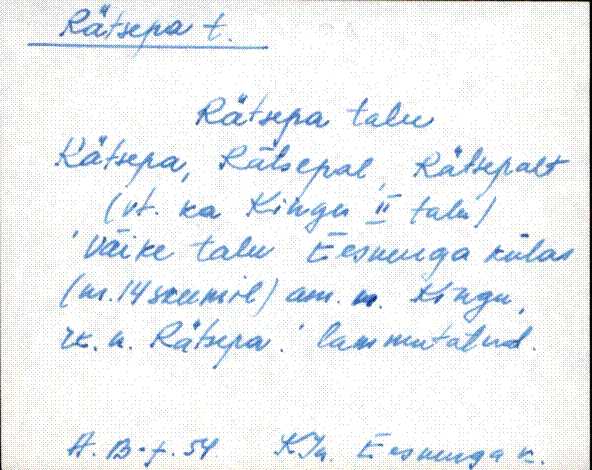 Rätsepa t.
Rätsepa talu
Rätsepa, Rätsepal, Rätsepalt
(vt. ka Kingu II talu)
Väike talu Eesnurga külas
(nr. 14 skeemil) am. n. Kingu,
rk. n. Rätsepa. lammutatud.
A. B-f. 54 KJn. Eesnurga k.